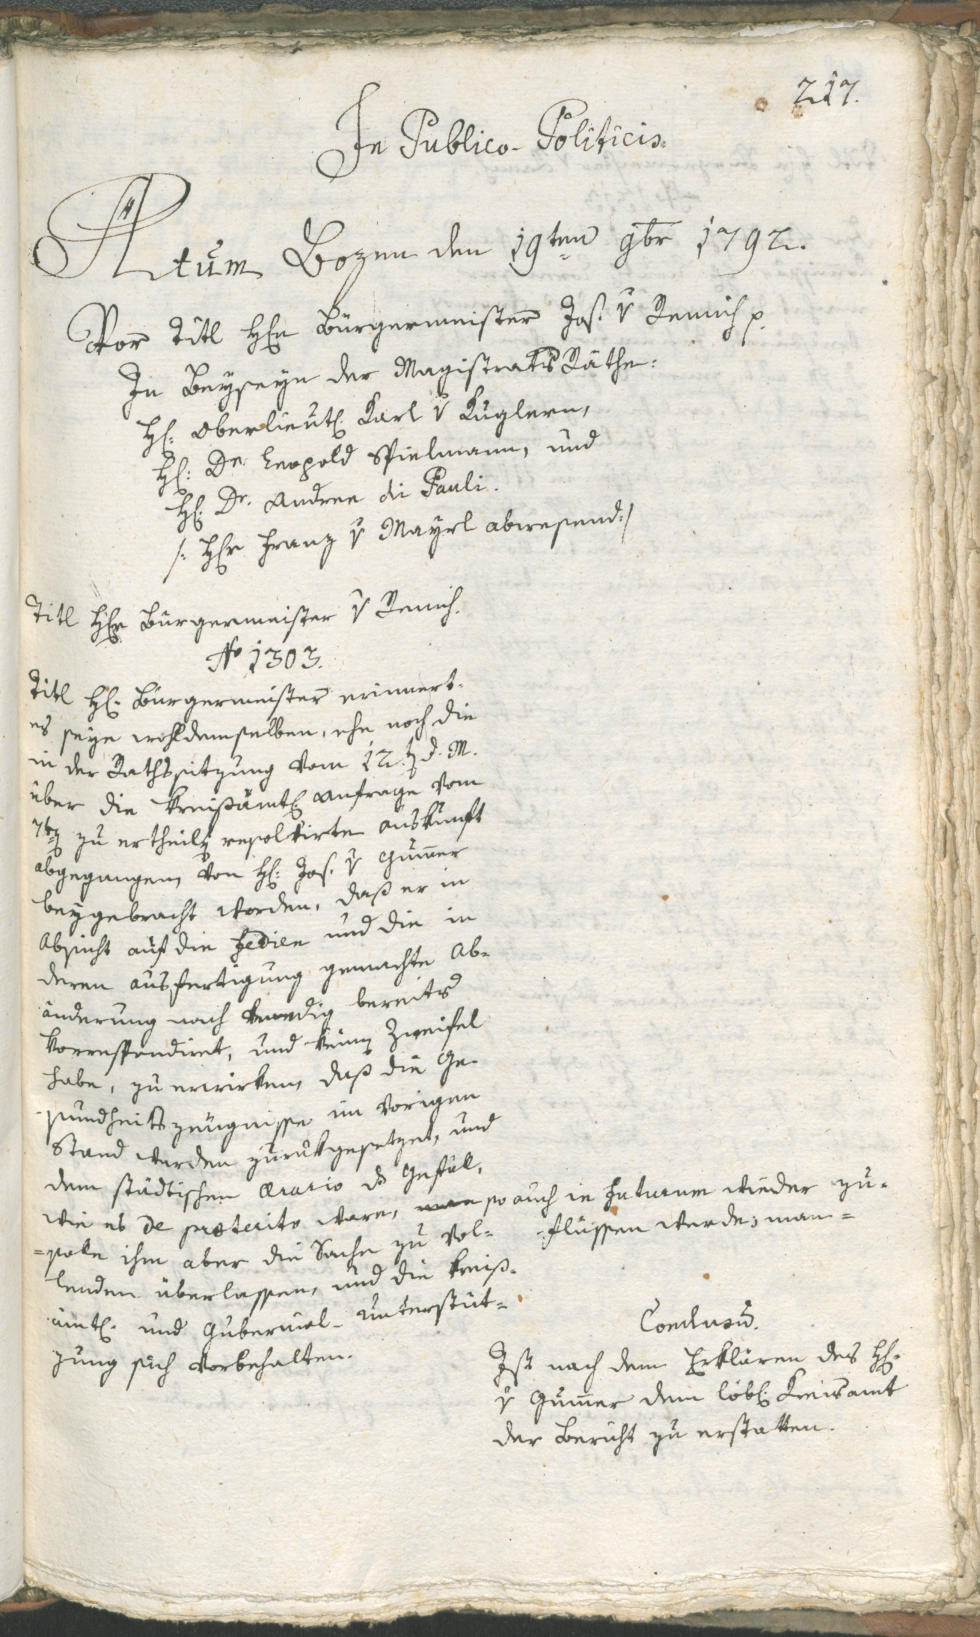 217.
In Publico-Politicis.
Actum Bozen den 19ten 9br 1792.
Vor Titl Hℓn Bürgermeister Jos. v Remich p.
In Beyseyn der Magistrats Räthe:
Hℓ: Oberlieutℓ Karl v Kuglern,
Hℓ: Dr. Leopold Spielmann, und
Hℓ: Dr. Andree di Pauli.
/: Hℓn Franz v Mayrl abwesend :/
Titl Hℓn Bürgermeister v Remich.
No 1303.
Titl Hℓ. Bürgermeister erinnert:
es seye wohldemselben, ehe noch die
in der Rathssitzung vom 12. d. M.
über die kreisämtℓ Anfrage vom
7ten zu ertheilen resolvirte Auskunft
abgegangen, von Hℓ: Jos. v Gumer
beygebracht worden, daß er in
Absicht auf die Fedien und die in
deren Ausfertigung gemachte Ab-
änderung nach Venedig bereits
korrespondiret, und keinen Zweifel
habe, zu erwirken, daß die Ge-
sundheitszeugnisse im vorigen
Stand werden zurükgesetzet, und
dem städtischen Ærario das Gefäl,
wie es de præterito ware, so auch in futurum wieder zu-
flüssen werde; man =
= solle ihm aber die Sache zu vol-
lenden überlassen, und die kreis-
ämtℓ. und Gubernial-Unterstüt-
zung sich vorbehalten.
Conclusum.
Ist nach dem Erklären des Hℓ.
v Gumer dem löbℓ. Kreisamt
der Bericht zu erstatten.